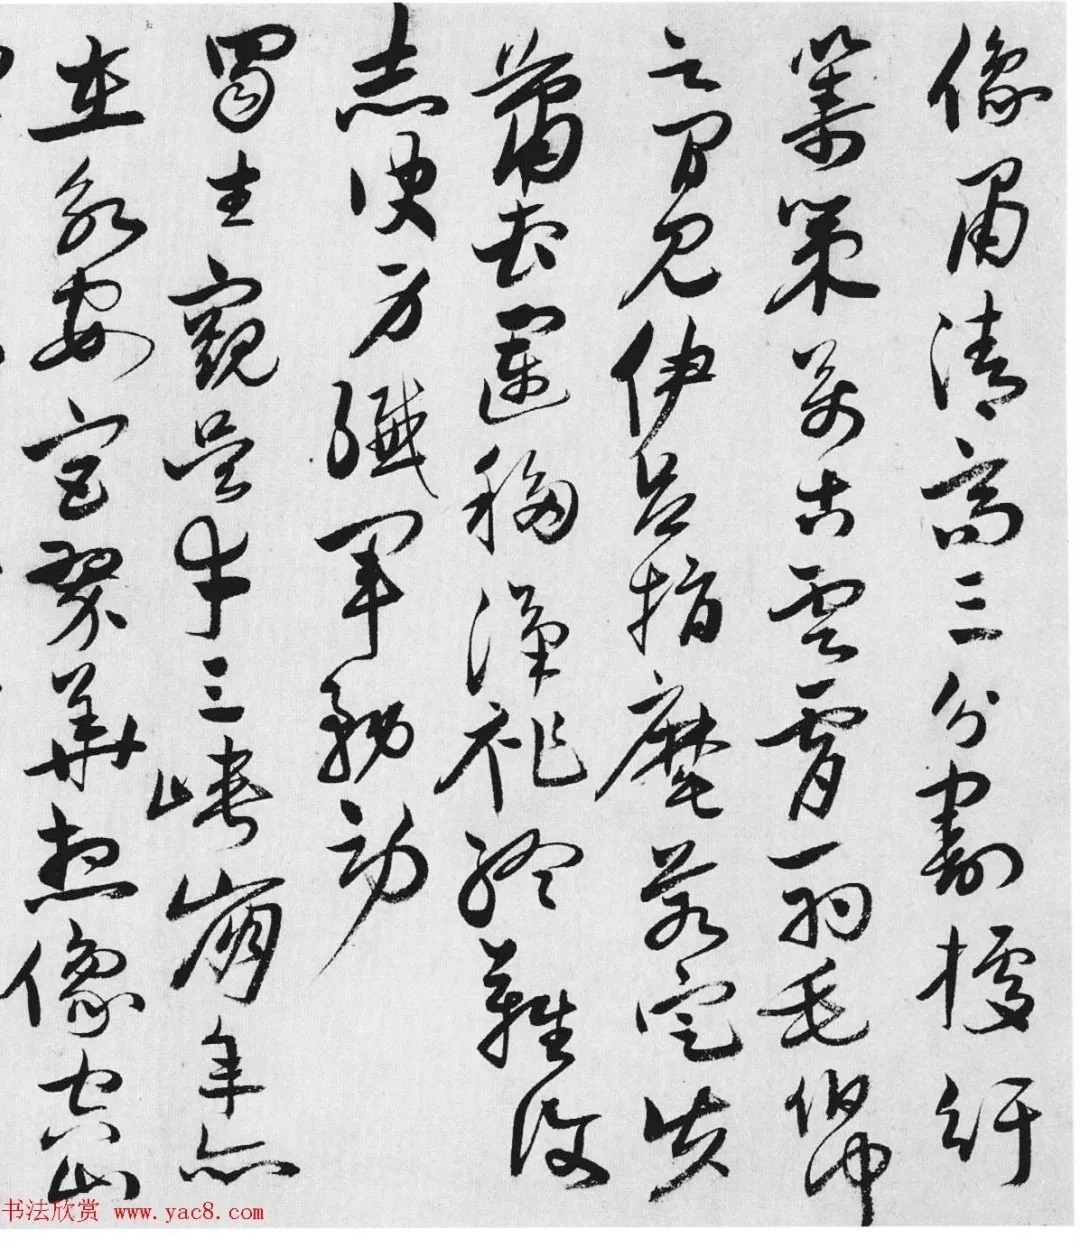 像肅清高三分割據紆
籌策萬古雲霄一羽毛伯仲
之間見伊呂指麾若定失
蕭曹運移漢祚終難復
志決身殲軍務勞
蜀主窺吳幸三峽崩年亦
在永安宮翠華想像空山
书法欣赏 www.yac8.com